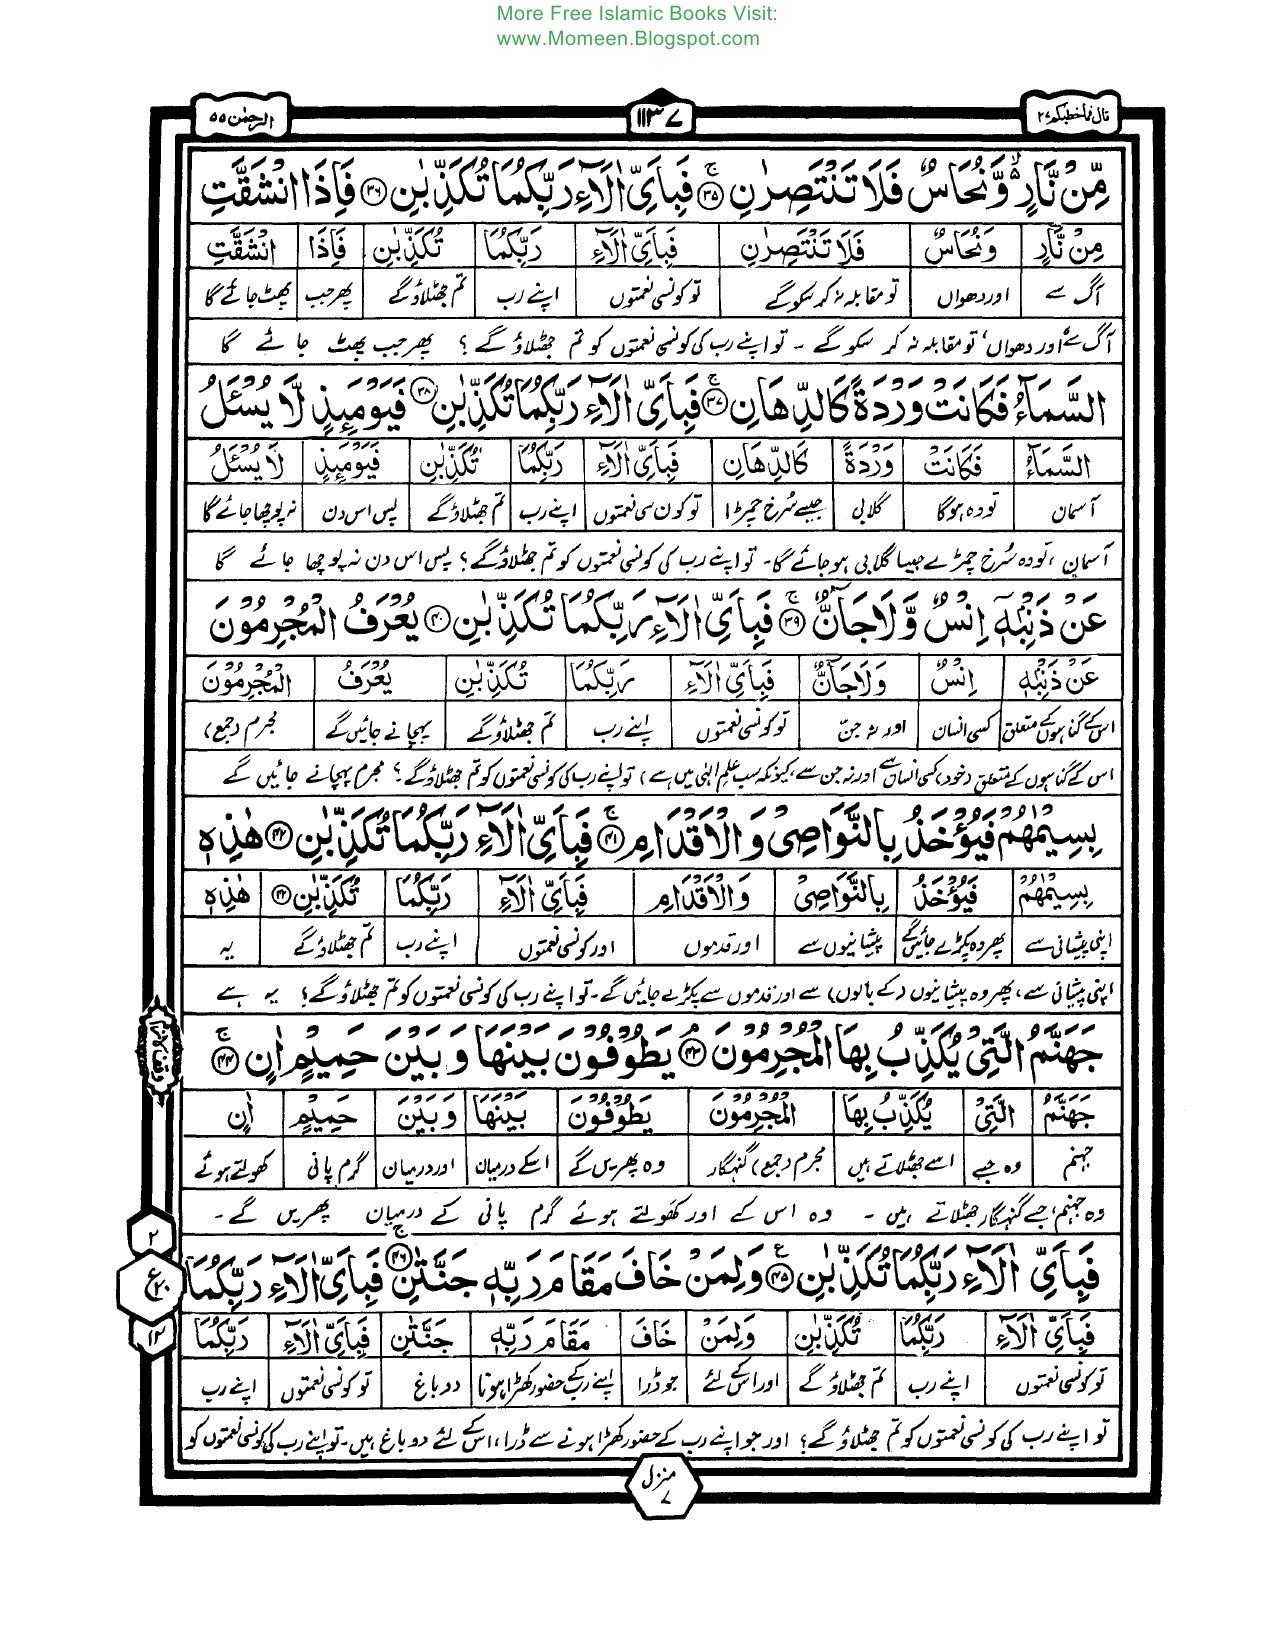 More Free Islamic Books Visit:
www.Momeen.Blogspot.com
الرحمٰن ۵۵
۱۱۳۷
قال فما خطبکم ۲۷
مِّنۡ نَّارٍ ۙ وَّنُحَاسٌ فَلَا تَنۡتَصِرٰنِ ۚ‏﴿۳۵﴾ فَبِاَىِّ اٰلَاۤءِ رَبِّكُمَا تُكَذِّبٰنِ ﴿۳۶﴾ فَاِذَا انْشَقَّتِ
مِنۡ نَّارٍ وَنُحَاسٌ فَلَا تَنۡتَصِرٰنِ فَبِاَىِّ اٰلَاۤءِ رَبِّكُمَا تُكَذِّبٰنِ فَاِذَا انْشَقَّتِ
آگ سے اور دھواں تو مقابلہ نہ کر سکو گے تو کونسی نعمتوں اپنے رب تم جھٹلاؤ گے پھر جب پھٹ جائے گا
آگ سے اور دھواں، تو مقابلہ نہ کر سکو گے ۔ تو اپنے رب کی کونسی نعمتوں کو تم جھٹلاؤ گے ؟ پھر جب پھٹ جائے گا
السَّمَآءُ فَكَانَتۡ وَرۡدَةً كَالدِّهَانِ ۚ‏﴿۳۷﴾ فَبِاَىِّ اٰلَاۤءِ رَبِّكُمَا تُكَذِّبٰنِ ﴿۳۸﴾ فَيَوۡمَئِذٍ لَّا يُسۡئَلُ
السَّمَآءُ فَكَانَتۡ وَرۡدَةً كَالدِّهَانِ فَبِاَىِّ اٰلَاۤءِ رَبِّكُمَا تُكَذِّبٰنِ فَيَوۡمَئِذٍ لَا يُسۡئَلُ
آسمان تو وہ ہوگا گلابی جیسے سُرخ چمڑا تو کون سی نعمتوں اپنے رب تم جھٹلاؤ گے پس اس دن نہ پوچھا جائے گا
آسمان، تو وہ سُرخ چمڑے جیسا گلابی ہو جائے گا۔ تو اپنے رب کی کونسی نعمتوں کو تم جھٹلاؤ گے؟ پس اس دن نہ پوچھا جائے گا
عَنۡ ذَنۡۢبِهٖۤ اِنۡسٌ وَّلَا جَآنٌّ ۚ‏﴿۳۹﴾ فَبِاَىِّ اٰلَاۤءِ رَبِّكُمَا تُكَذِّبٰنِ ﴿۴۰﴾ يُعۡرَفُ الۡمُجۡرِمُوۡنَ
عَنۡ ذَنۡۢبِهٖۤ اِنۡسٌ وَلَا جَآنٌّ فَبِاَىِّ اٰلَاۤءِ رَبِّكُمَا تُكَذِّبٰنِ يُعۡرَفُ الۡمُجۡرِمُوۡنَ
اس کے گناہوں کے متعلق کسی انسان اور نہ جنّ تو کونسی نعمتوں اپنے رب تم جھٹلاؤ گے پہچانے جائیں گے مجرم (جمع)
اس کے گناہوں کے متعلق (خود) کسی انسان سے اور نہ جن سے (کیونکہ سب علمِ الٰہی میں ہے) تو اپنے رب کی کونسی نعمتوں کو تم جھٹلاؤ گے؟ مجرم پہچانے جائیں گے
بِسِيۡمٰهُمۡ فَيُؤۡخَذُ بِالنَّوَاصِىۡ وَالۡاَقۡدَامِ ۚ‏﴿۴۱﴾ فَبِاَىِّ اٰلَاۤءِ رَبِّكُمَا تُكَذِّبٰنِ ﴿۴۲﴾ هٰذِهٖ
بِسِيۡمٰهُمۡ فَيُؤۡخَذُ بِالنَّوَاصِىۡ وَالۡاَقۡدَامِ فَبِاَىِّ اٰلَاۤءِ رَبِّكُمَا تُكَذِّبٰنِ ﴿۴۲﴾ هٰذِهٖ
اپنی پیشانی سے پھر وہ پکڑے جائیں گے پیشانیوں سے اور قدموں اور کونسی نعمتوں اپنے رب تم جھٹلاؤ گے یہ
اپنی پیشانی سے، پھر وہ پیشانیوں (کے بالوں) سے اور قدموں سے پکڑے جائیں گے۔ تو اپنے رب کی کونسی نعمتوں کو تم جھٹلاؤ گے؟ یہ ہے
جَهَنَّمُ الَّتِىۡ يُكَذِّبُ بِهَا الۡمُجۡرِمُوۡنَ ۘ‏﴿۴۳﴾ يَطُوۡفُوۡنَ بَيۡنَهَا وَبَيۡنَ حَمِيۡمٍ اٰنٍ ۚ‏﴿۴۴﴾
جَهَنَّمُ الَّتِىۡ يُكَذِّبُ بِهَا الۡمُجۡرِمُوۡنَ يَطُوۡفُوۡنَ بَيۡنَهَا وَبَيۡنَ حَمِيۡمٍ اٰنٍ
جہنم وہ جسے اسے جھٹلاتے ہیں مجرم (جمع) گنہگار وہ پھریں گے اسکے درمیان اور درمیان گرم پانی کھولتے ہوئے
وہ جہنم، جسے گنہگار جھٹلاتے ہیں ۔ وہ اس کے اور کھولتے ہوئے گرم پانی کے درمیان پھریں گے ۔
فَبِاَىِّ اٰلَاۤءِ رَبِّكُمَا تُكَذِّبٰنِ ﴿۴۵﴾ وَلِمَنۡ خَافَ مَقَامَ رَبِّهٖ جَنَّتٰنِ ۚ‏﴿۴۶﴾ فَبِاَىِّ اٰلَاۤءِ رَبِّكُمَا
۲
ع
۲۰
۱۲
فَبِاَىِّ اٰلَاۤءِ رَبِّكُمَا تُكَذِّبٰنِ وَلِمَنۡ خَافَ مَقَامَ رَبِّهٖ جَنَّتٰنِ فَبِاَىِّ اٰلَاۤءِ رَبِّكُمَا
تو کونسی نعمتوں اپنے رب تم جھٹلاؤ گے اور اس کے لئے جو ڈرا اپنے رب کے حضور کھڑا ہونا دو باغ تو کونسی نعمتوں اپنے رب
تو اپنے رب کی کونسی نعمتوں کو تم جھٹلاؤ گے؟ اور جو اپنے رب کے حضور کھڑا ہونے سے ڈرا، اس کے لئے دو باغ ہیں۔ تو اپنے رب کی کونسی نعمتوں کو
منزل ۷